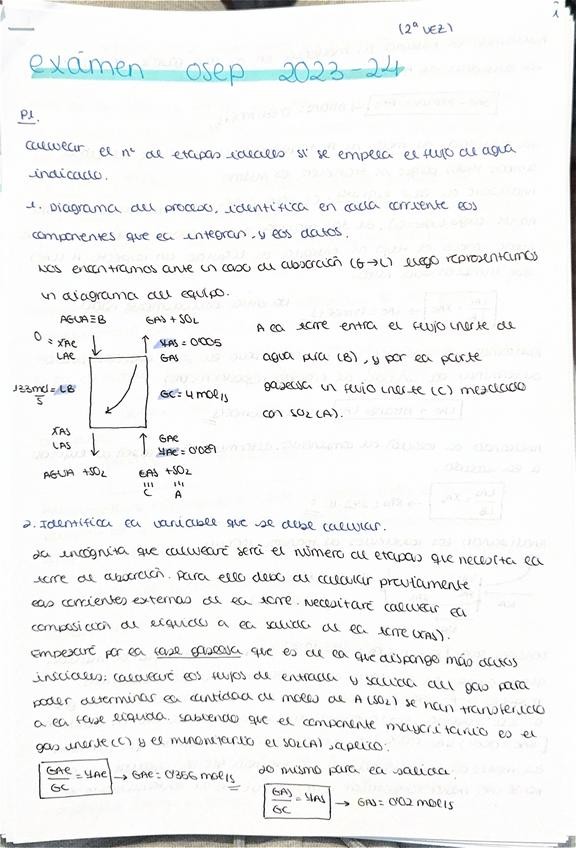 (2ª VEZ)
exámen osep 2023-24
P1.
Calcular el nº de etapas ideales si se emplea el flujo de agua
indicado.
1. Diagrama del proceso, identifica en cada corriente los
componentes que la integran, y los datos.
Nos encontramos ante un caso de absorción (G→L) luego representamos
un diagrama del equipo.
AGUA≡B GAS + SO2
0 = XAe YAS = 0'005
LAe GAS
123 mol/s = LB GC = 4 mol/s
XAS GAe
LAS YAe = 0'089
AGUA + SO2 GAS + SO2
C A
A la torre entra el flujo inerte de
agua pura (B), y por la parte
gaseosa un flujo inerte (C) mezclado
con SO2 (A).
2. Identifica la variable que se debe calcular.
La incógnita que calcularé será el número de etapas que necesita la
torre de absorción. Para ello debo de calcular previamente
las corrientes externas de la torre. Necesitaré calcular la
composición de líquido a la salida de la torre (XAS).
Empezaré por la fase gaseosa que es de la que dispongo más datos
iniciales: calcularé los flujos de entrada y salida del gas para
poder determinar la cantidad de moles de A (SO2) se han transferido
a la fase líquida. Sabiendo que el componente mayoritario es el
gas inerte (C) y el minoritario el SO2 (A), aplico:
GAe/GC = YAe → GAe = 0'356 mol/s Lo mismo para la salida:
GAS/GC = YAS → GAS = 0'02 mol/s